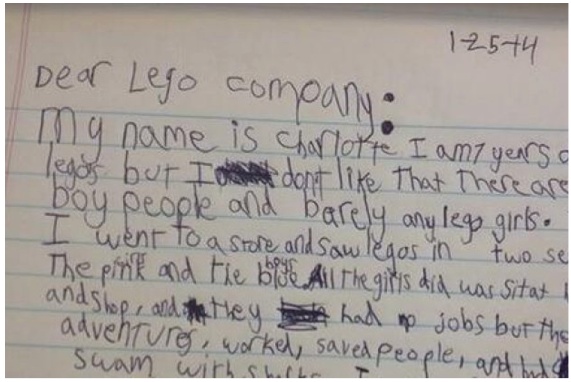 1-25-14
Dear Lego company:
My name is Charlotte I am 7 years
legos but I don't like that there are
boy people and barely any lego girls.
I went to a store and saw legos in two
girls boys
The pink and the blue. All the girls did was sit at
and shop, and they had no jobs but the
adventures, worked, saved people, and had
swam with sharks, I